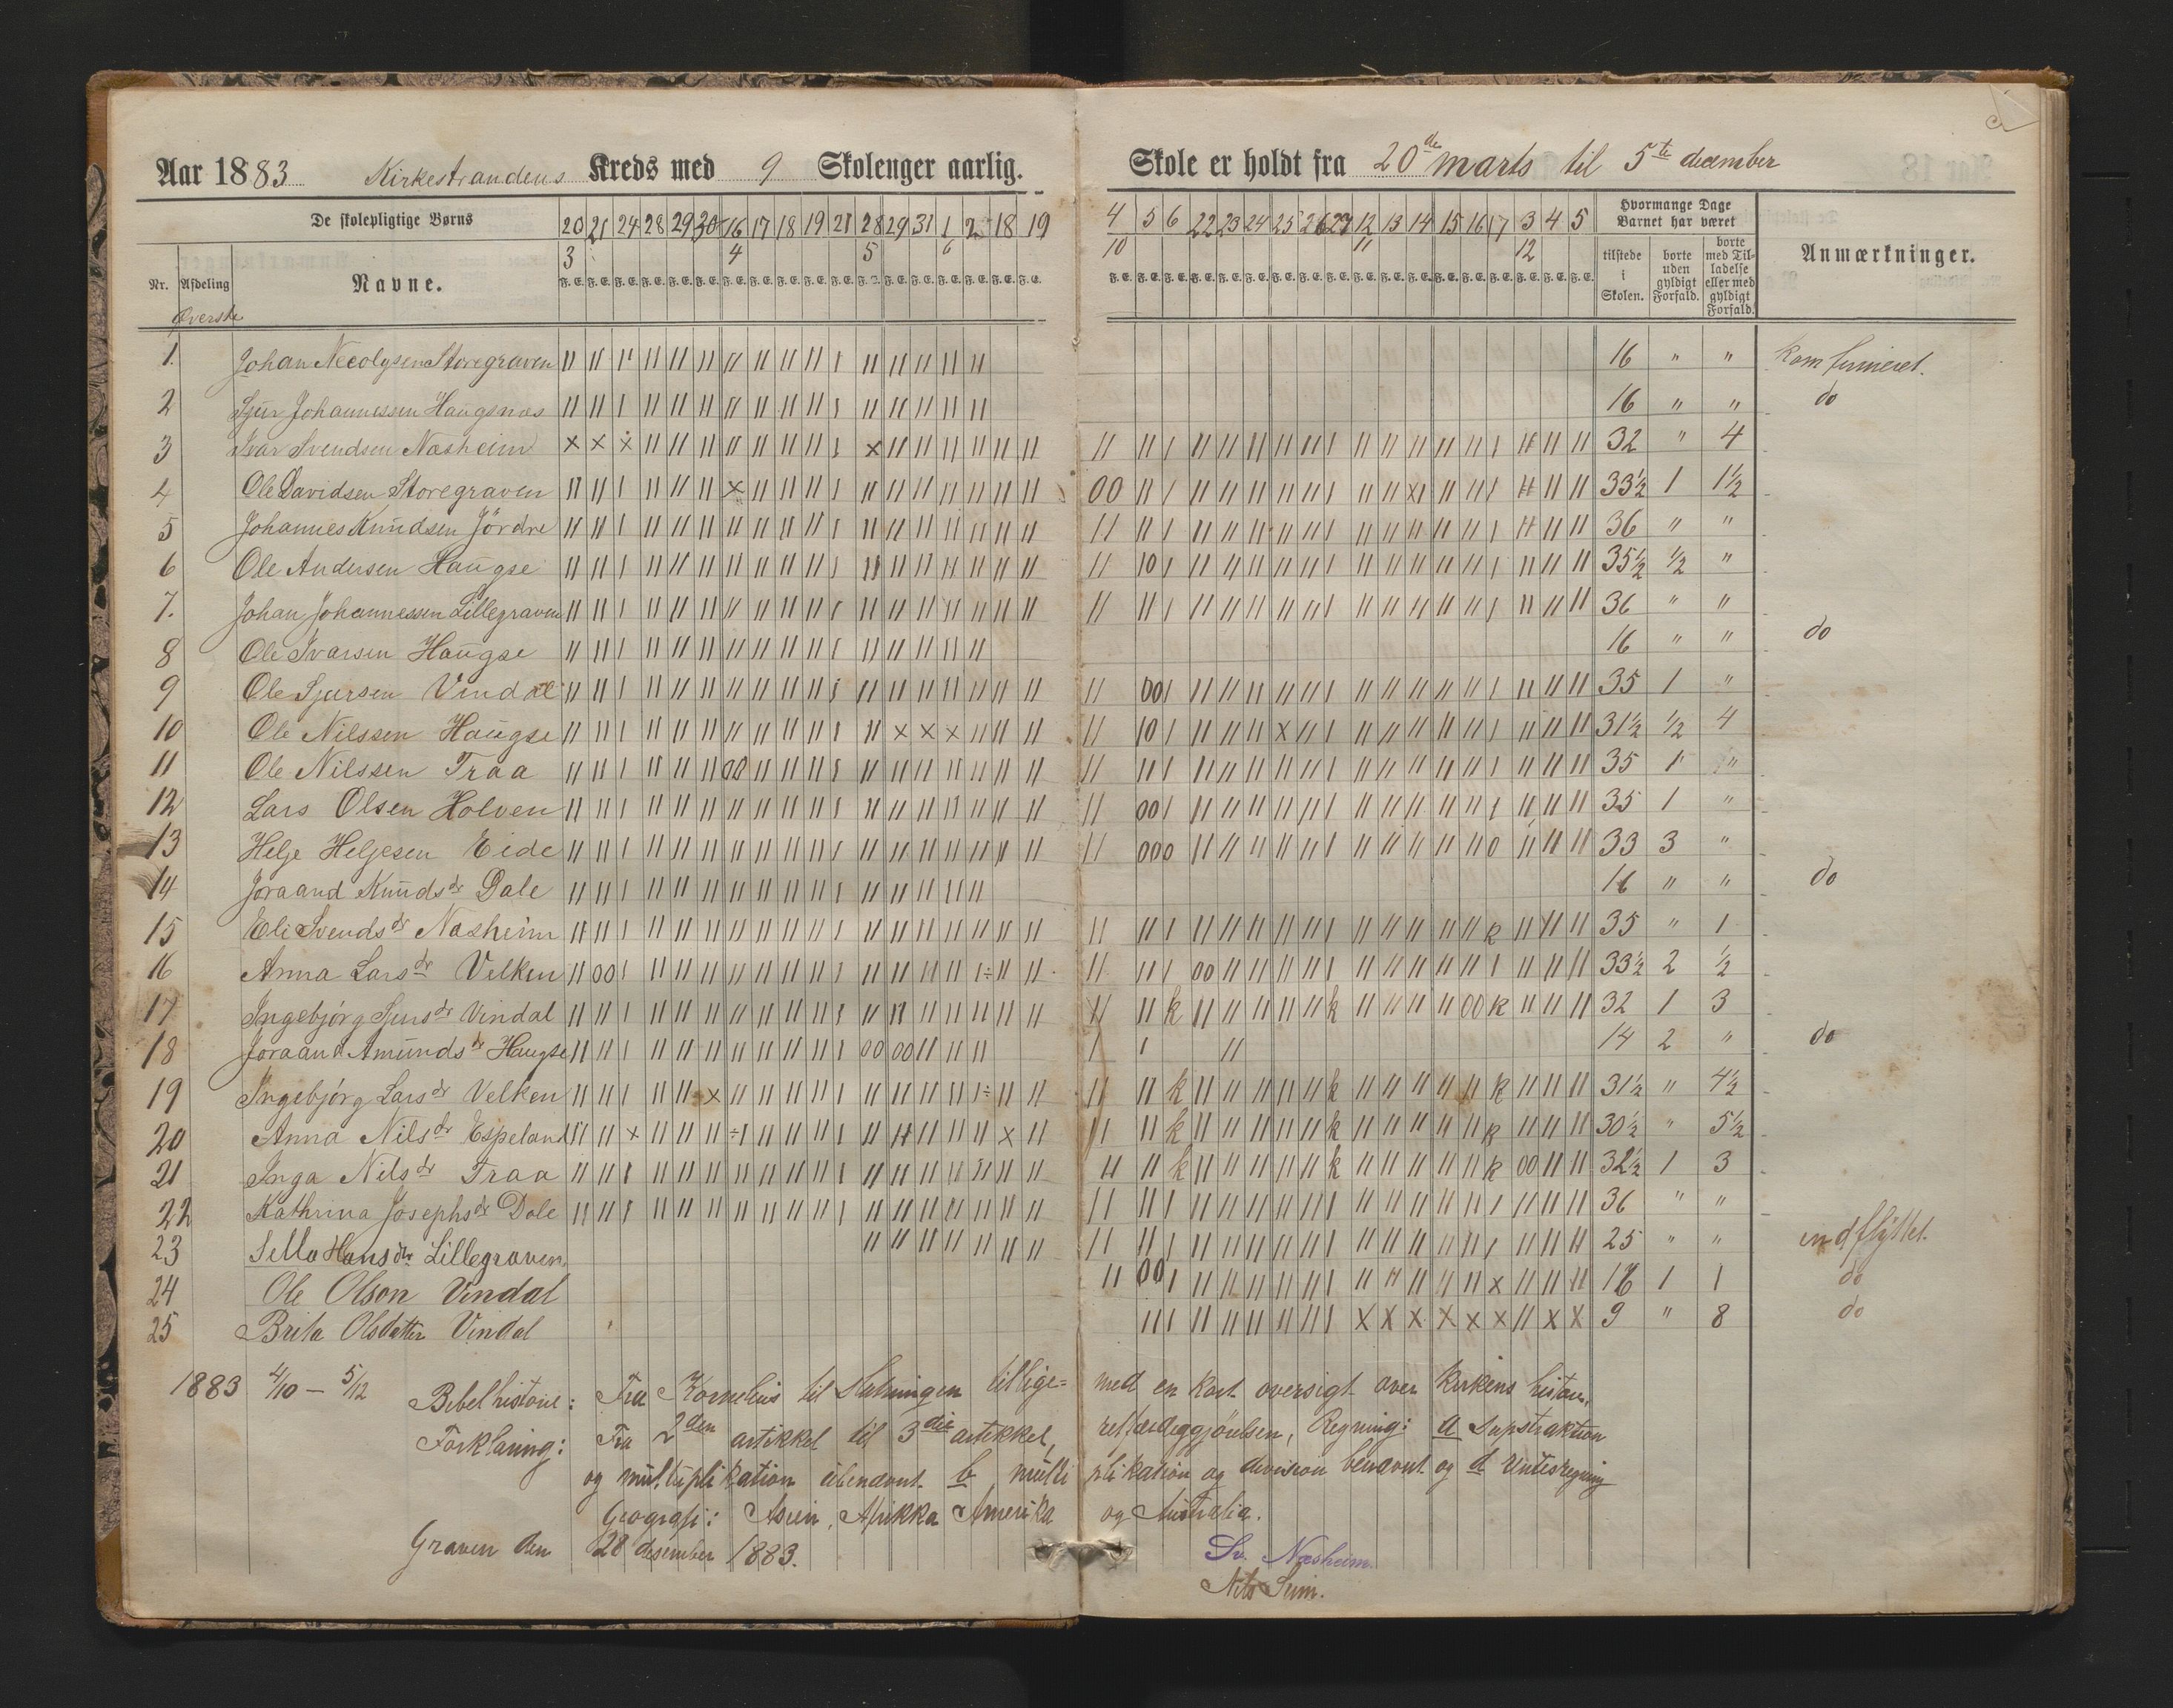 Aar 1883 Kirkestrandens Kreds med 9 Skolenger aarlig. Skole er holdt fra 20de marts til 5te december
De skolepligtige Børns 20 21 24 28 29 30 16 17 18 19 21 28 29 31 1 2 18 19 4 5 6 22 23 24 25 26 27 12 13 14 15 16 17 3 4 5 Hvormange Dage Barnet har været
3 4 5 6 10 11 12
Nr. Afdeling Navne. tilstede i Skolen. borte uden gyldigt Forfald. borte med Tilladelse eller med gyldigt Forfald. Anmærkninger.
Øverste
1. Johan Necolysen Storegraven 16 " " Komfirmeret.
2 Sjur Johannessen Haugsnæs 16 " " do
3 Ivar Svendsen Næsheim 32 " 4
4 Ole Davidsen Storegraven 33½ 1 1½
5 Johannes Knudsen Jördre 36 " "
6 Ole Andersen Haugse 35½ ½ "
7. Johan Johannessen Lillegraven 36 " "
8 Ole Ivarsen Haugse 16 " " do
9 Ole Sjursen Vindal 35 1 "
10 Ole Nilssen Haugse 31½ ½ 4
11 Ole Nilssen Traa 35 1 "
12 Lars Olsen Holven 35 1 "
13 Helje Heljesen Eide 33 3 "
14 Joraand Knudsdr Dale 16 " " do
15 Eli Svendsdr Næsheim 35 " 1
16 Anna Larsdr Velken 33½ 2 ½
17 Ingebjørg Sjursdr Vindal 32 1 3
18 Joraand Amundsdr Haugse 14 2 " do
19 Ingebjørg Larsdr Velken 31½ " 4½
20 Anna Nilsdr Espeland 30½ " 5½
21 Inga Nilsdr Traa 32½ 1 3
22 Kathrina Josephsdr Dale 36 " "
23 Sella Hansdtr Lillegraven 25 " " indflyttet.
24 Ole Olson Vindal 16 1 1 do
25 Brita Olsdatter Vindal 9 " 8 do
1883 4/10 – 5/12 Bibelhistorie: Fra Kornelius til Slutningen tillige= med en kort oversigt over Kirkens historie,
Forklaring: Fra 2den artikkel til 3die artikkel, retfærdeggjörelsen, Regning: a Supstraktion
og multuplikation ubenævnt b multi plikation og devision benævnt og d
Geografi: Asien, Afrikka Amerika og Australia.
Graven den 28 desember 1883. Sv. Næsheim
Nils Seim.